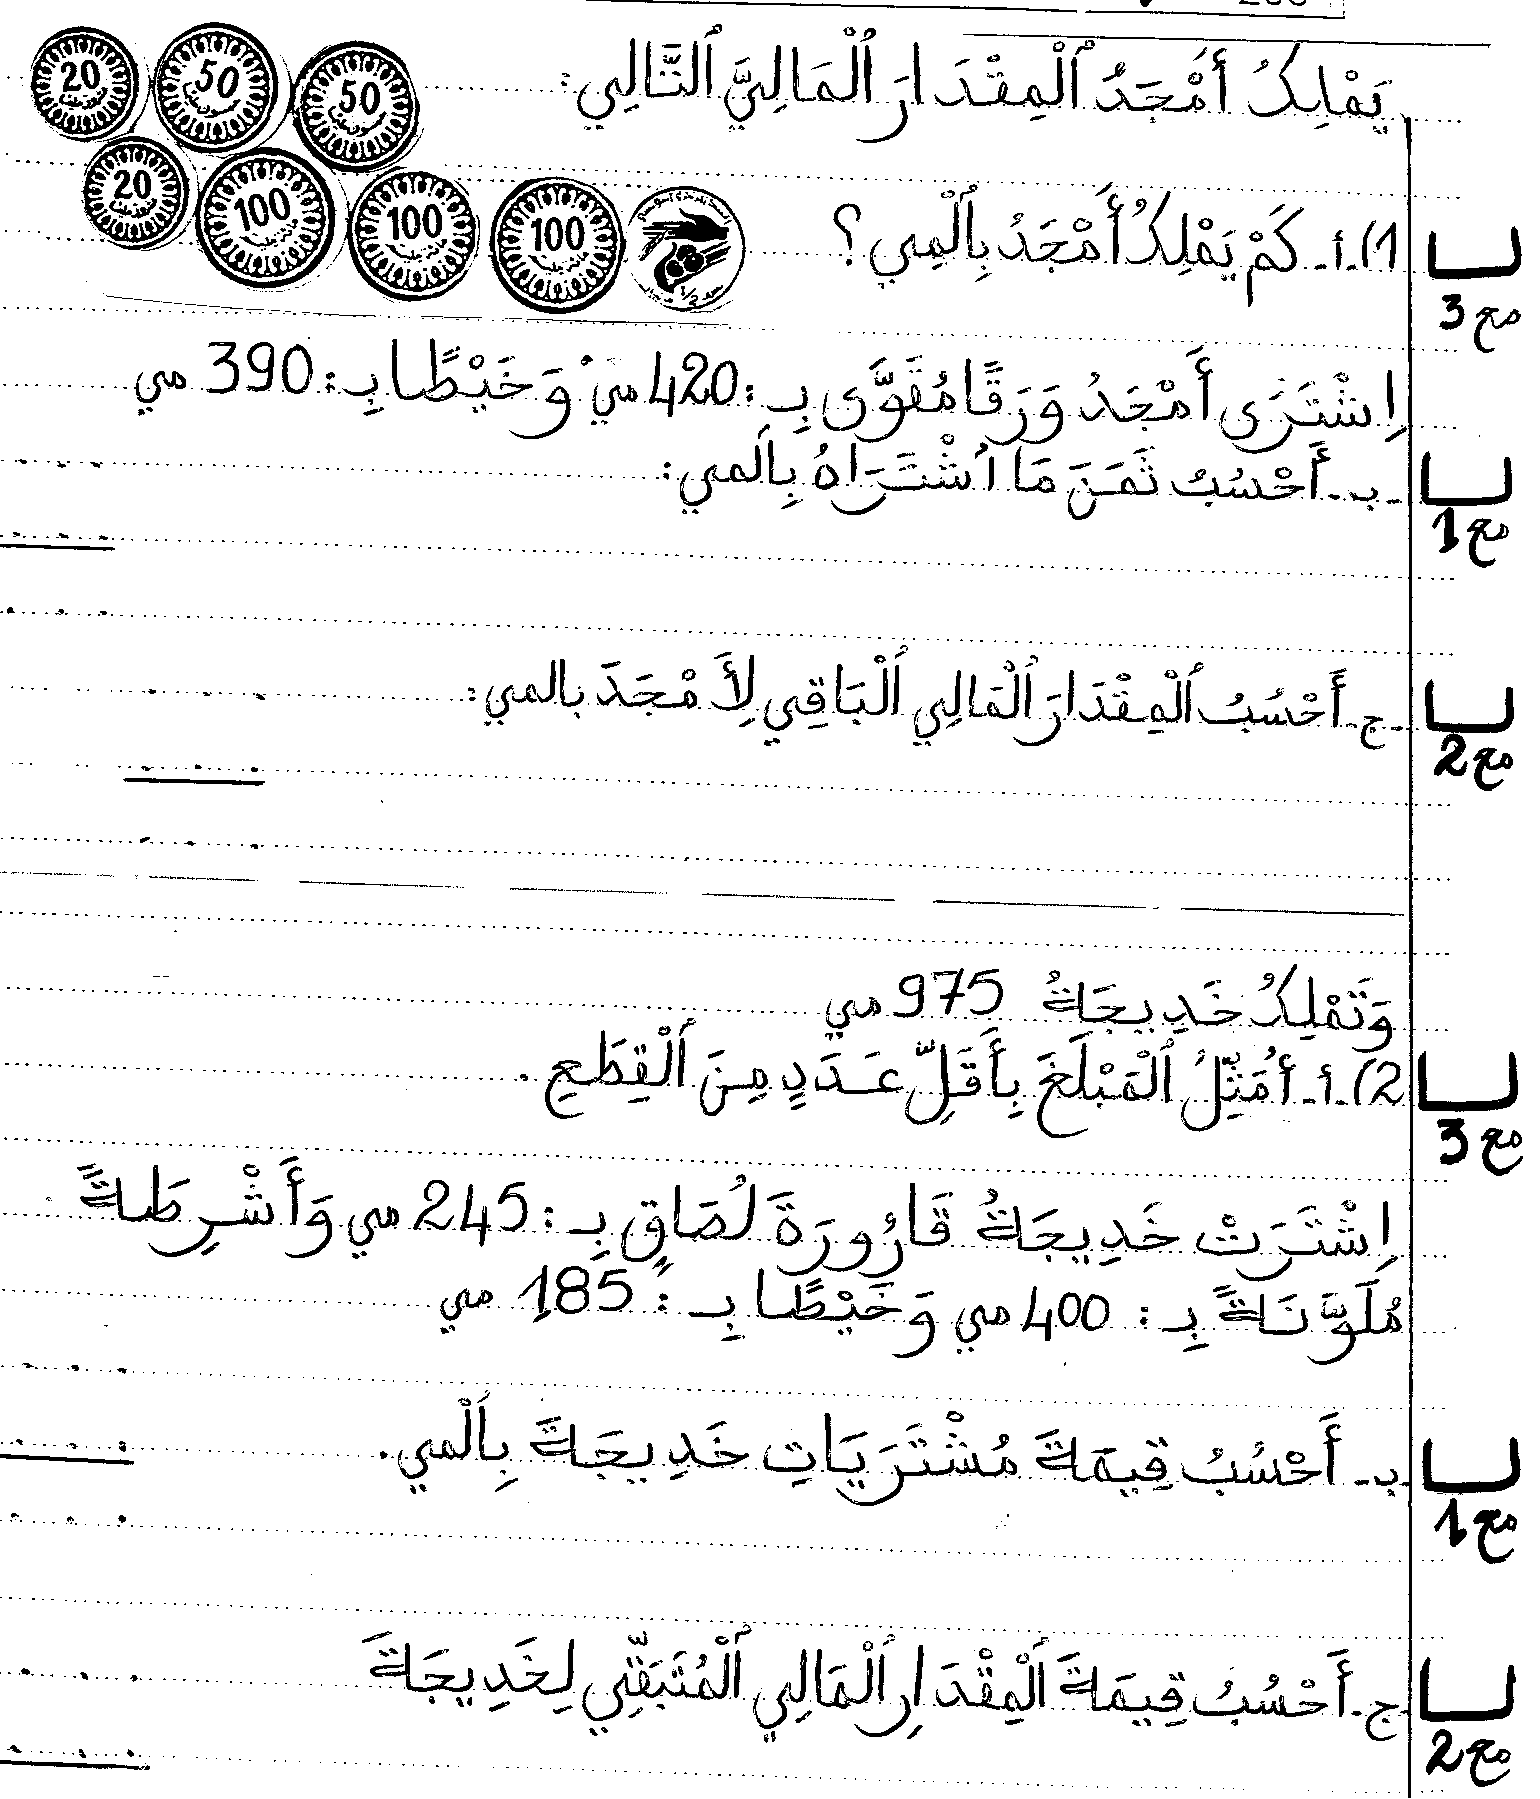 يَمْلِكُ أَمْجَدُ ٱلْمِقْدَارَ ٱلْمَالِيَّ ٱلتَّالِي:
20 50 50
20 100 100 100 1/2
1) أ- كَمْ يَمْلِكُ أَمْجَدُ بِٱلْمِي ؟
مع 3
اِشْتَرَى أَمْجَدُ وَرَقًا مُقَوَّى بِـ: 420 مي وَ خَيْطًا بِـ: 390 مي
- ب - أَحْسُبُ ثَمَنَ مَا ٱشْتَرَاهُ بِٱلمي:
مع 1
- ج - أَحْسُبُ ٱلْمِقْدَارَ ٱلْمَالِي ٱلْبَاقِي لِأَمْجَدَ بالمي:
مع 2
وَتَمْلِكُ خَدِيجَةُ 975 مي
2) أ- أُمَثِّلُ ٱلْمَبْلَغَ بِأَقَلِّ عَدَدٍ مِنَ ٱلْقِطَعِ .
مع 3
اِشْتَرَتْ خَدِيجَةُ قَارُورَةَ لُصَاقٍ بِـ : 245 مي وَأَشْرِطَةً
مُلَوَّنَةً بِـ : 400 مي وَخَيْطًا بِـ : 185 مي
- ب - أَحْسُبُ قِيمَةَ مُشْتَرَيَاتِ خَدِيجَةَ بِٱلْمي.
مع 1
- ج - أَحْسُبُ قِيمَةَ ٱلْمِقْدَارِ ٱلْمَالِي ٱلْمُتَبَقِّي لِخَدِيجَةَ
مع 2